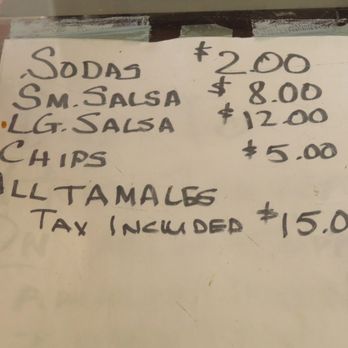 SODAS $2.00
SM. SALSA $8.00
LG. SALSA $12.00
CHIPS $5.00
ALL TAMALES
TAX INCLUDED $15.0